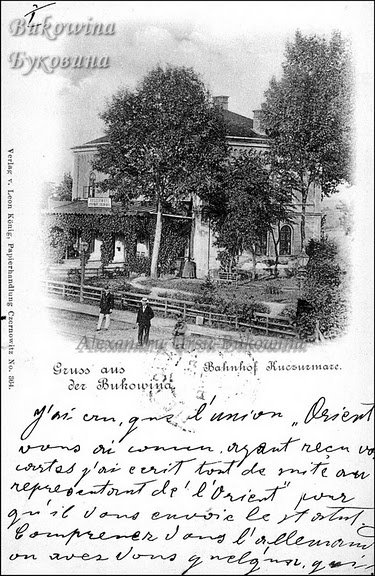 Bukowina
Буковина
Verlag v. Leon König, Papierhandlung Czernowitz No. 394.
Alexandru Ursu Bukowina
Gruss aus der Bukowina.
Bahnhof Kuczurmare.
J'ai cru, que l'union „Orient
vous ai connu, ayant reçu vo
cartes j'ai ecrit tout de suite au
representant de l'Orient" pour
qu'il vous envoie le statut.
Comprenez Vous l'allemand
ou avez Vous quelqu'un, qui